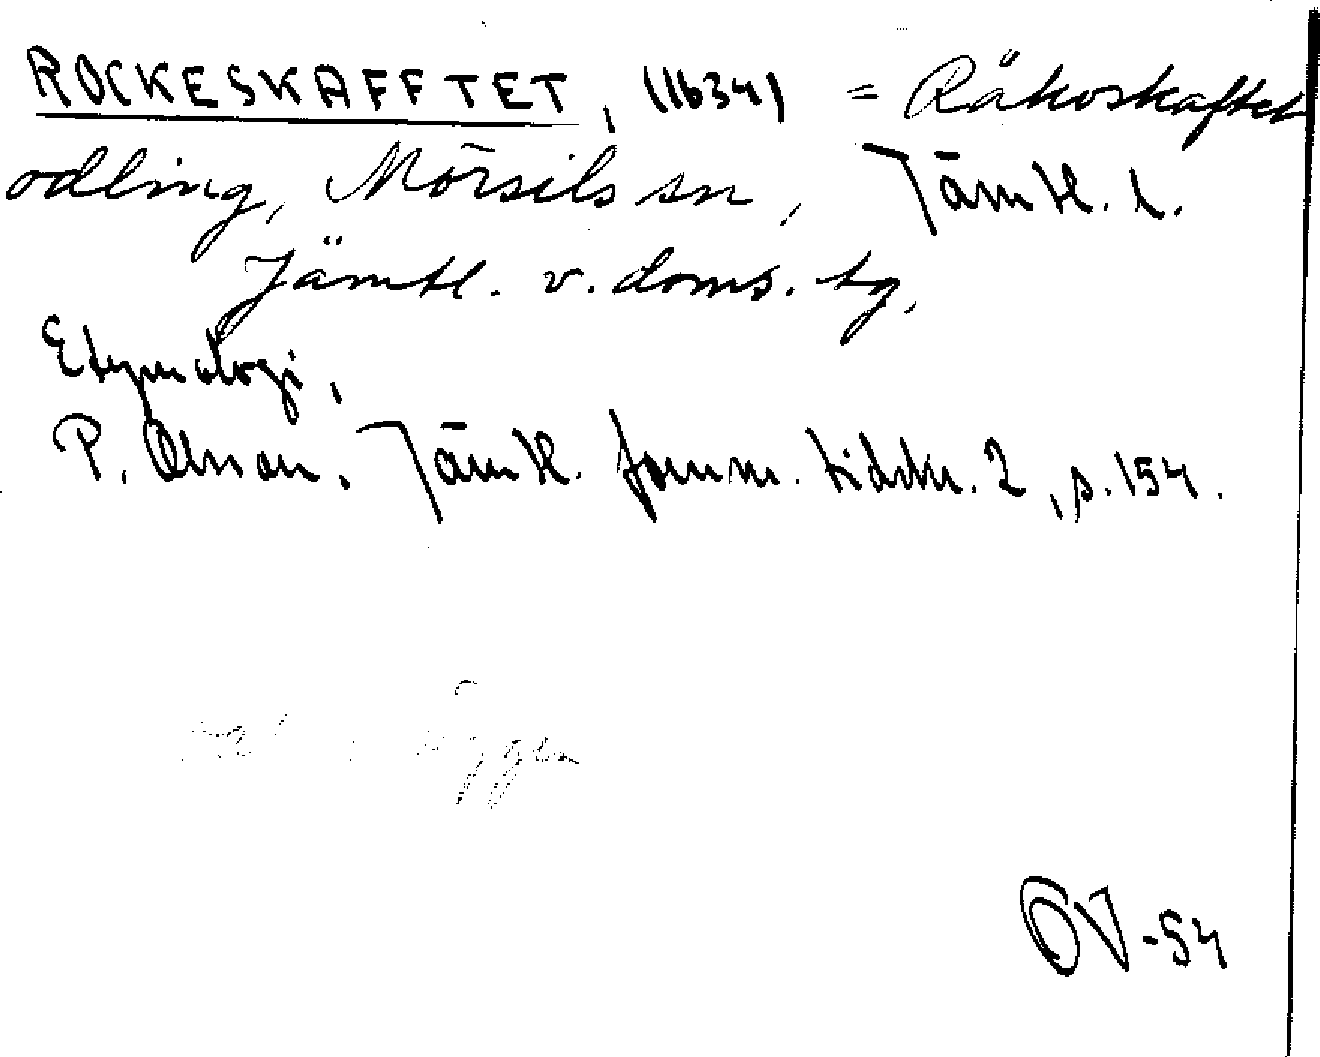 ROCKESKAFFTET, (1634) = Räkoskaftet
odling, Mörsils sn, Jämtl. l.
Jämtl. v. doms. tg.
Etymologi,
P. Olsson, Jämtl. fornm. tidskr. 2, s. 154.
ÖV-54